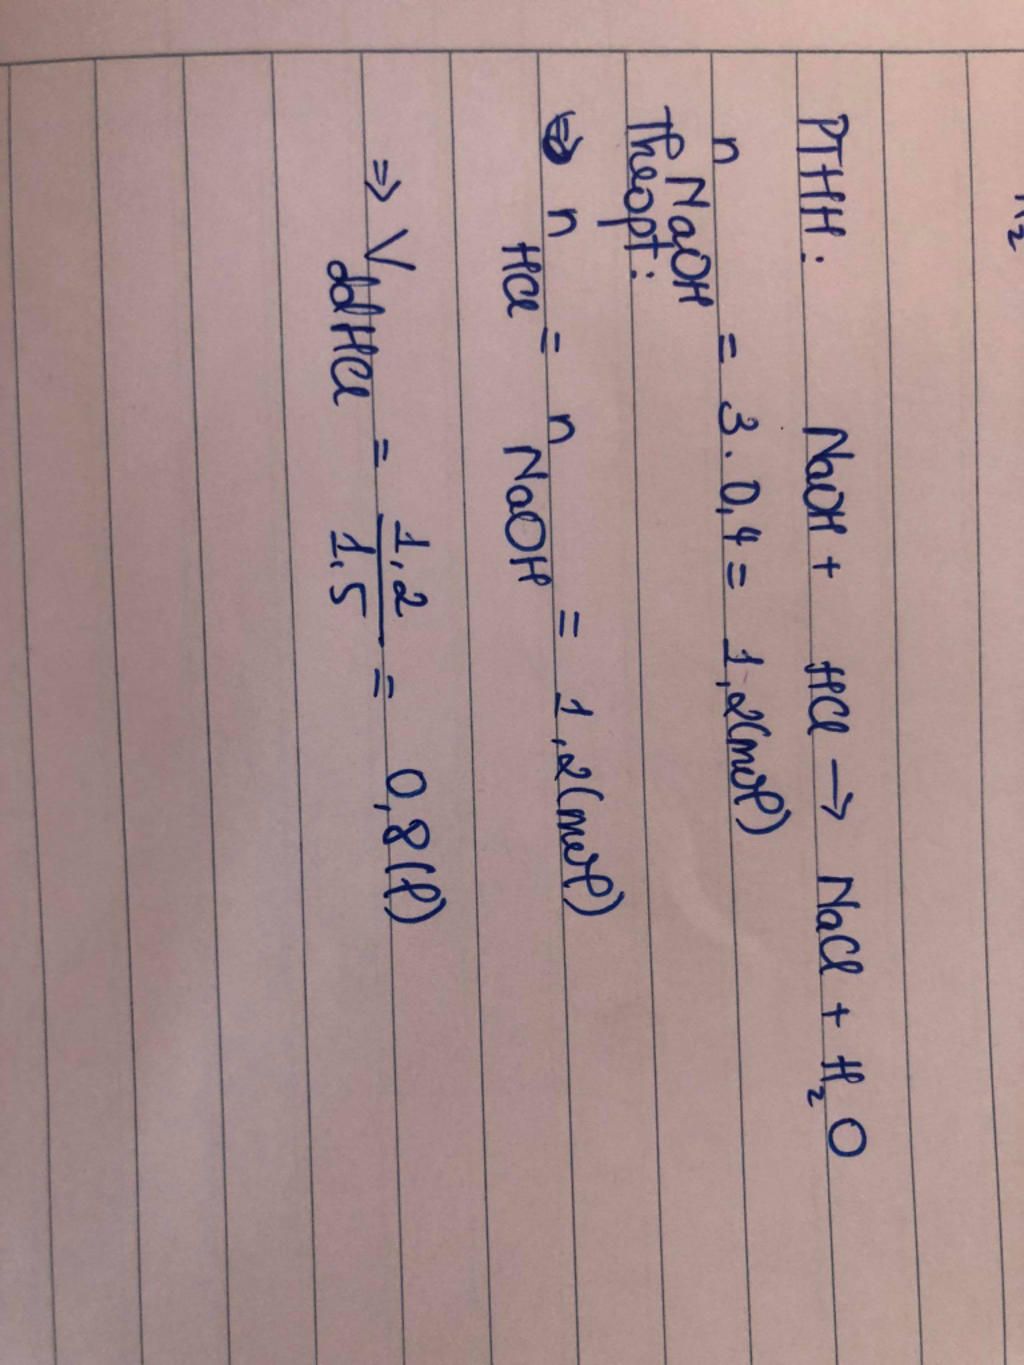 PTHH: NaOH + HCl → NaCl + H₂O
n NaOH = 3 . 0,4 = 1,2(mol)
Theo pt:
⇒ n HCl = n NaOH = 1,2(mol)
⇒ V ddHCl = 1,2 / 1,5 = 0,8(l)